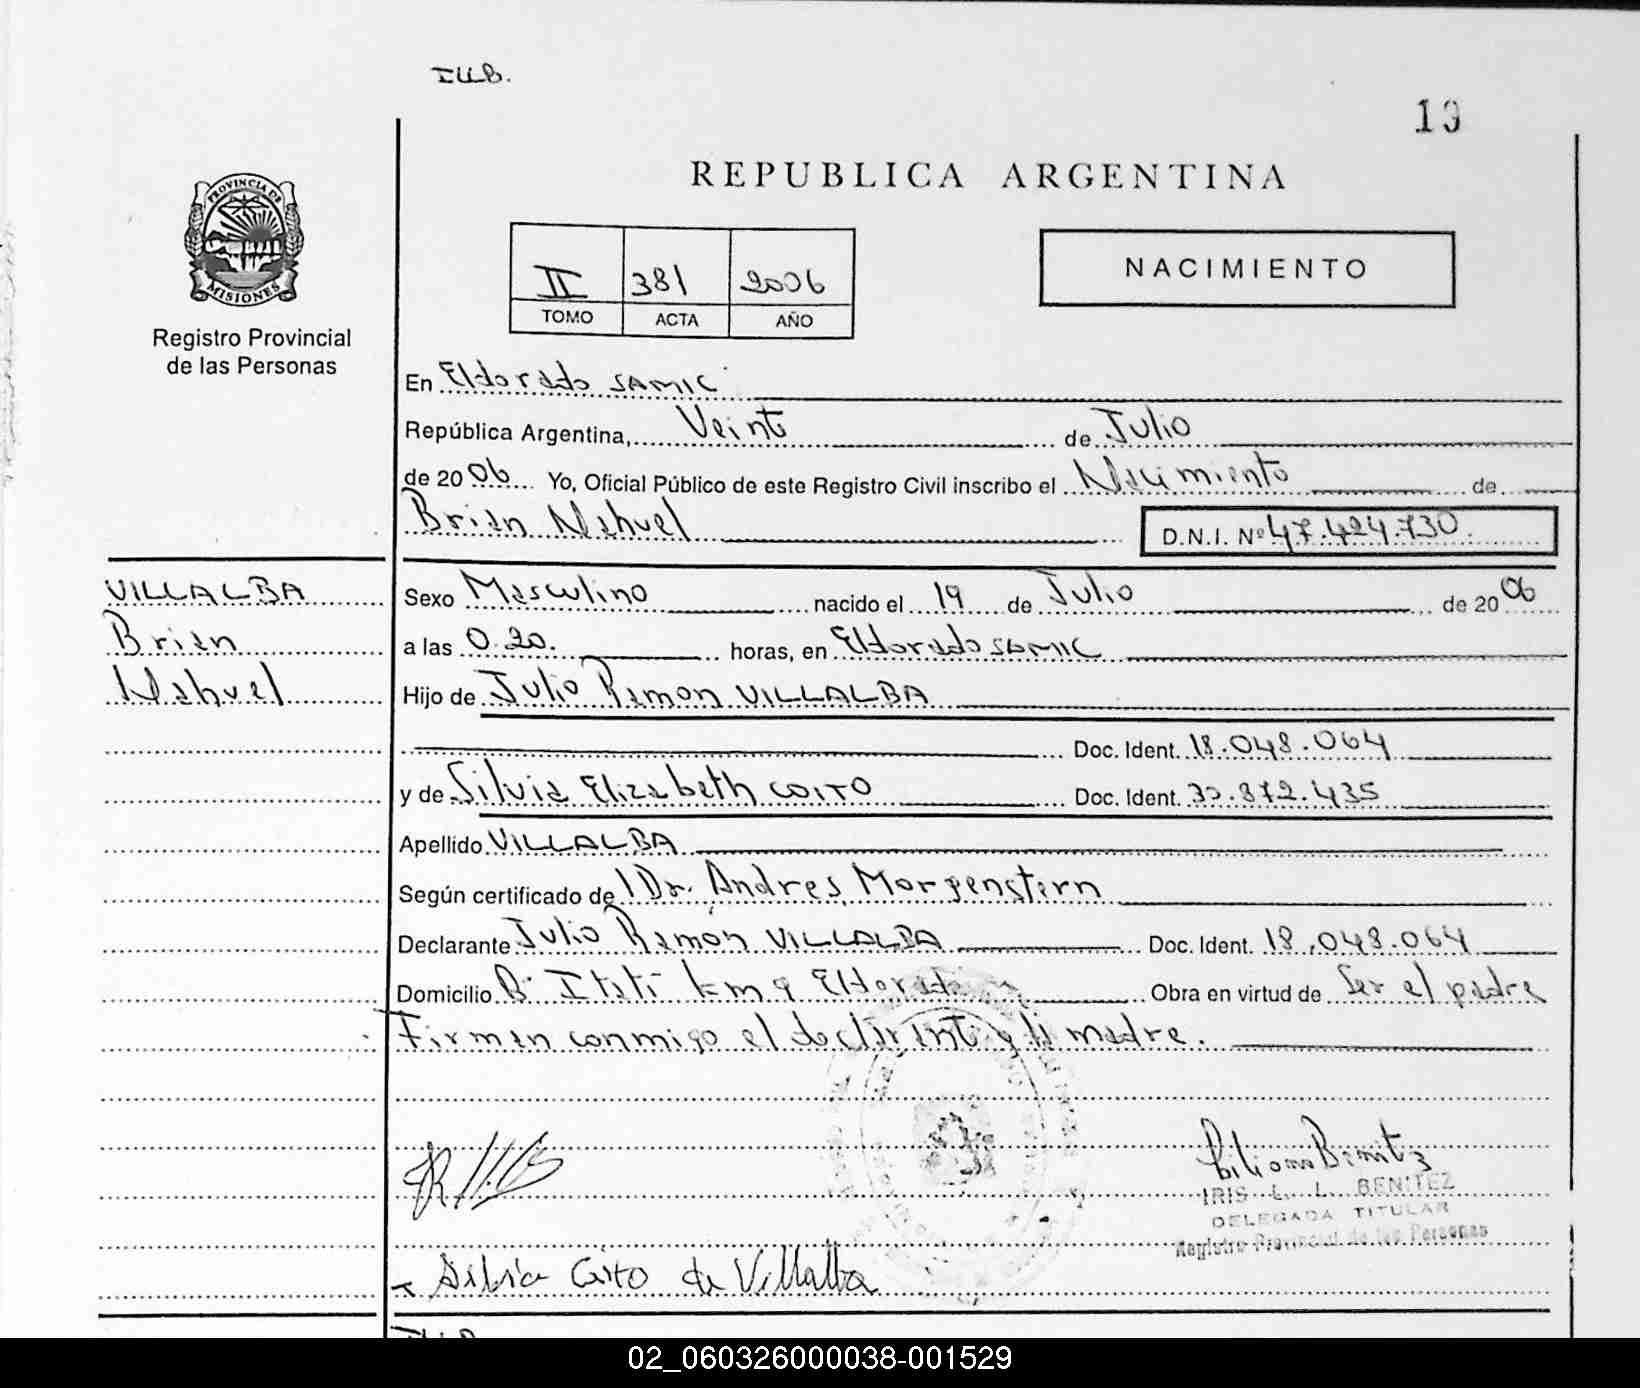 I.LL.B.
19
REPUBLICA ARGENTINA
PROVINCIA DE
MISIONES
Registro Provincial
de las Personas
II 381 2006
TOMO ACTA AÑO
NACIMIENTO
En Eldorado SAMIC
República Argentina, Veinte de Julio
de 2006 Yo, Oficial Público de este Registro Civil inscribo el Nacimiento de
Brian Nahuel D.N.I. Nº 47.424.730.
VILLALBA
Brian
Nahuel
Sexo Masculino nacido el 19 de Julio de 2006
a las 0.20. horas, en Eldorado SAMIC
Hijo de Julio Ramon VILLALBA
Doc. Ident. 18.048.064
y de Silvia Elizabeth COITO Doc. Ident. 30.872.435
Apellido VILLALBA
Según certificado de l Dr. Andres Morgenstern
Declarante Julio Ramon VILLALBA Doc. Ident. 18.048.064
Domicilio Bº Itati km 9 Eldorado Obra en virtud de Ser el padre
Firman conmigo el declarante y la madre.
IRIS L. L. BENITEZ
DELEGADA TITULAR
Registro Provincial de las Personas
Silvia Coito de Villalba
02_060326000038-001529